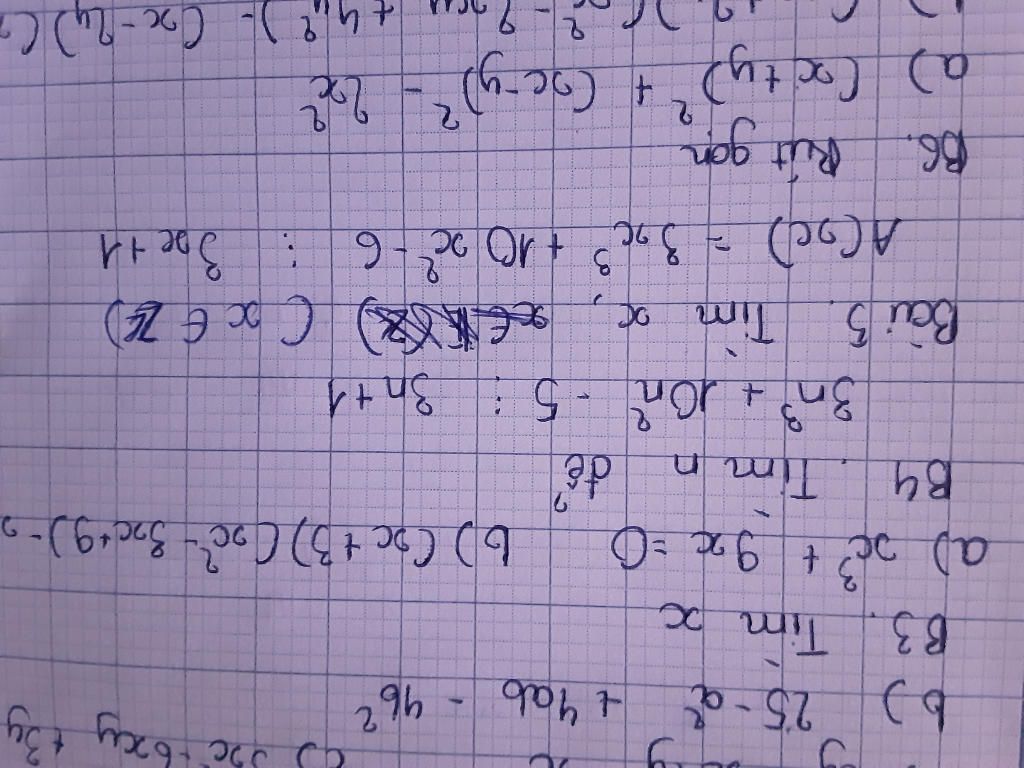 c) 3x² + 6xy + 3y
b) 25 - a² + 4ab - 4b²
B3. Tìm x
a) x³ + 9x = 0 b) (x+3)(x² - 3x + 9) -
B4. Tìm n để
3n³ + 10n² - 5 ⋮ 3n+1
Bài 5. Tìm x, (x ∈ Z)
A(x) = 3x³ + 10x² - 6 ⋮ 3x+1
B6. Rút gọn
a) (x+y)² + (x-y)² - 2x²
+ 4y²) - (x-2y)(